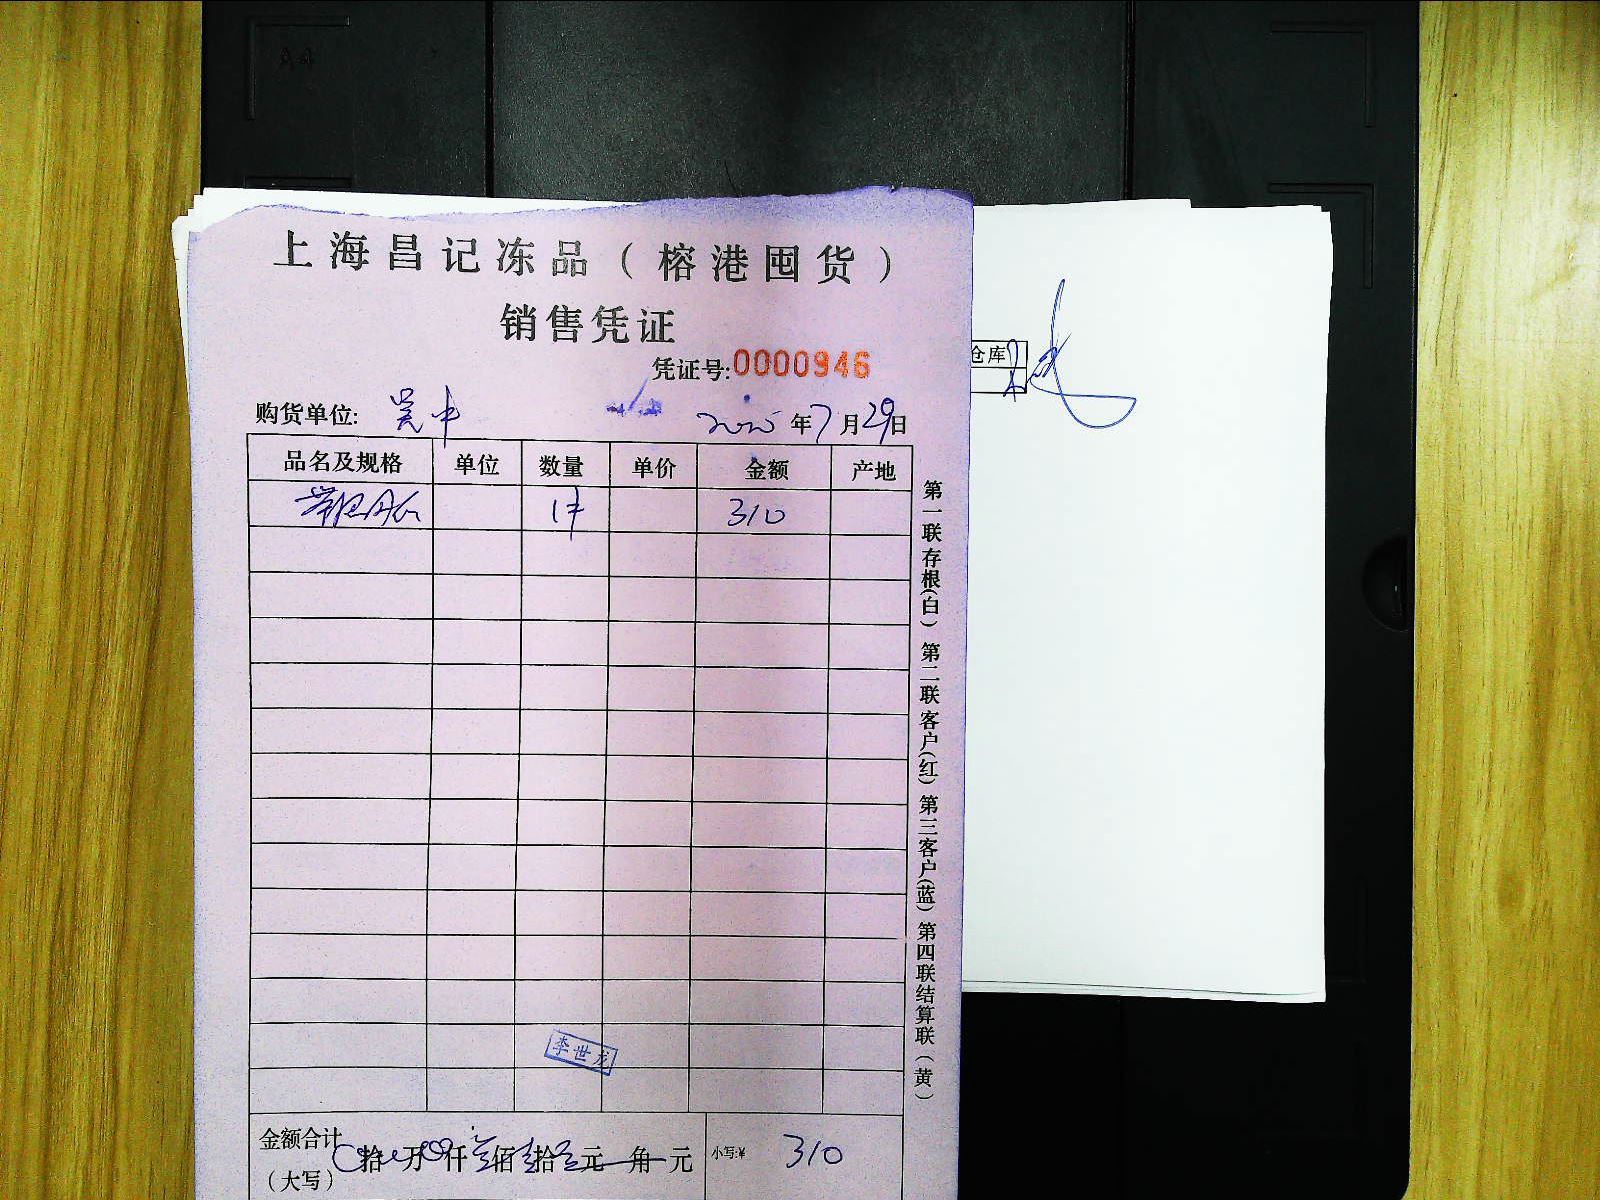 A4
上海昌记冻品（榕港囤货）
销售凭证
凭证号:0000946
购货单位: 吴中 2025年7月29日
品名及规格 单位 数量 单价 金额 产地
1件 310
李世龙
金额合计 拾 万 仟 叁佰 壹拾 元 角 元 小写:¥ 310
（大写）
第一联存根(白) 第二联客户(红) 第三客户(蓝) 第四联结算联(黄)
仓库